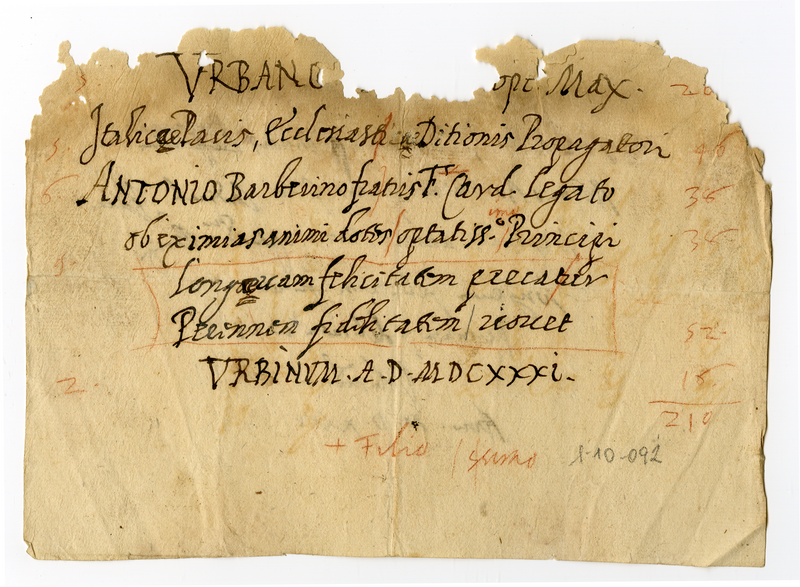 5. VRBANO opt. Max. 26
5. Italicae Pacis, Ecclesiast Ditionis Propagatori 46
6. ANTONIO Barberino fratris F. Card. Legato 36
ob eximias animi dotes / optatiss.o Principi 38
5. Longaeuam felicitatem precatur
Perennem fidelitatem / uouet 52
2. VRBINVM. A. D. MDCXXXI. 18
210
+ Filio / 1-10-092